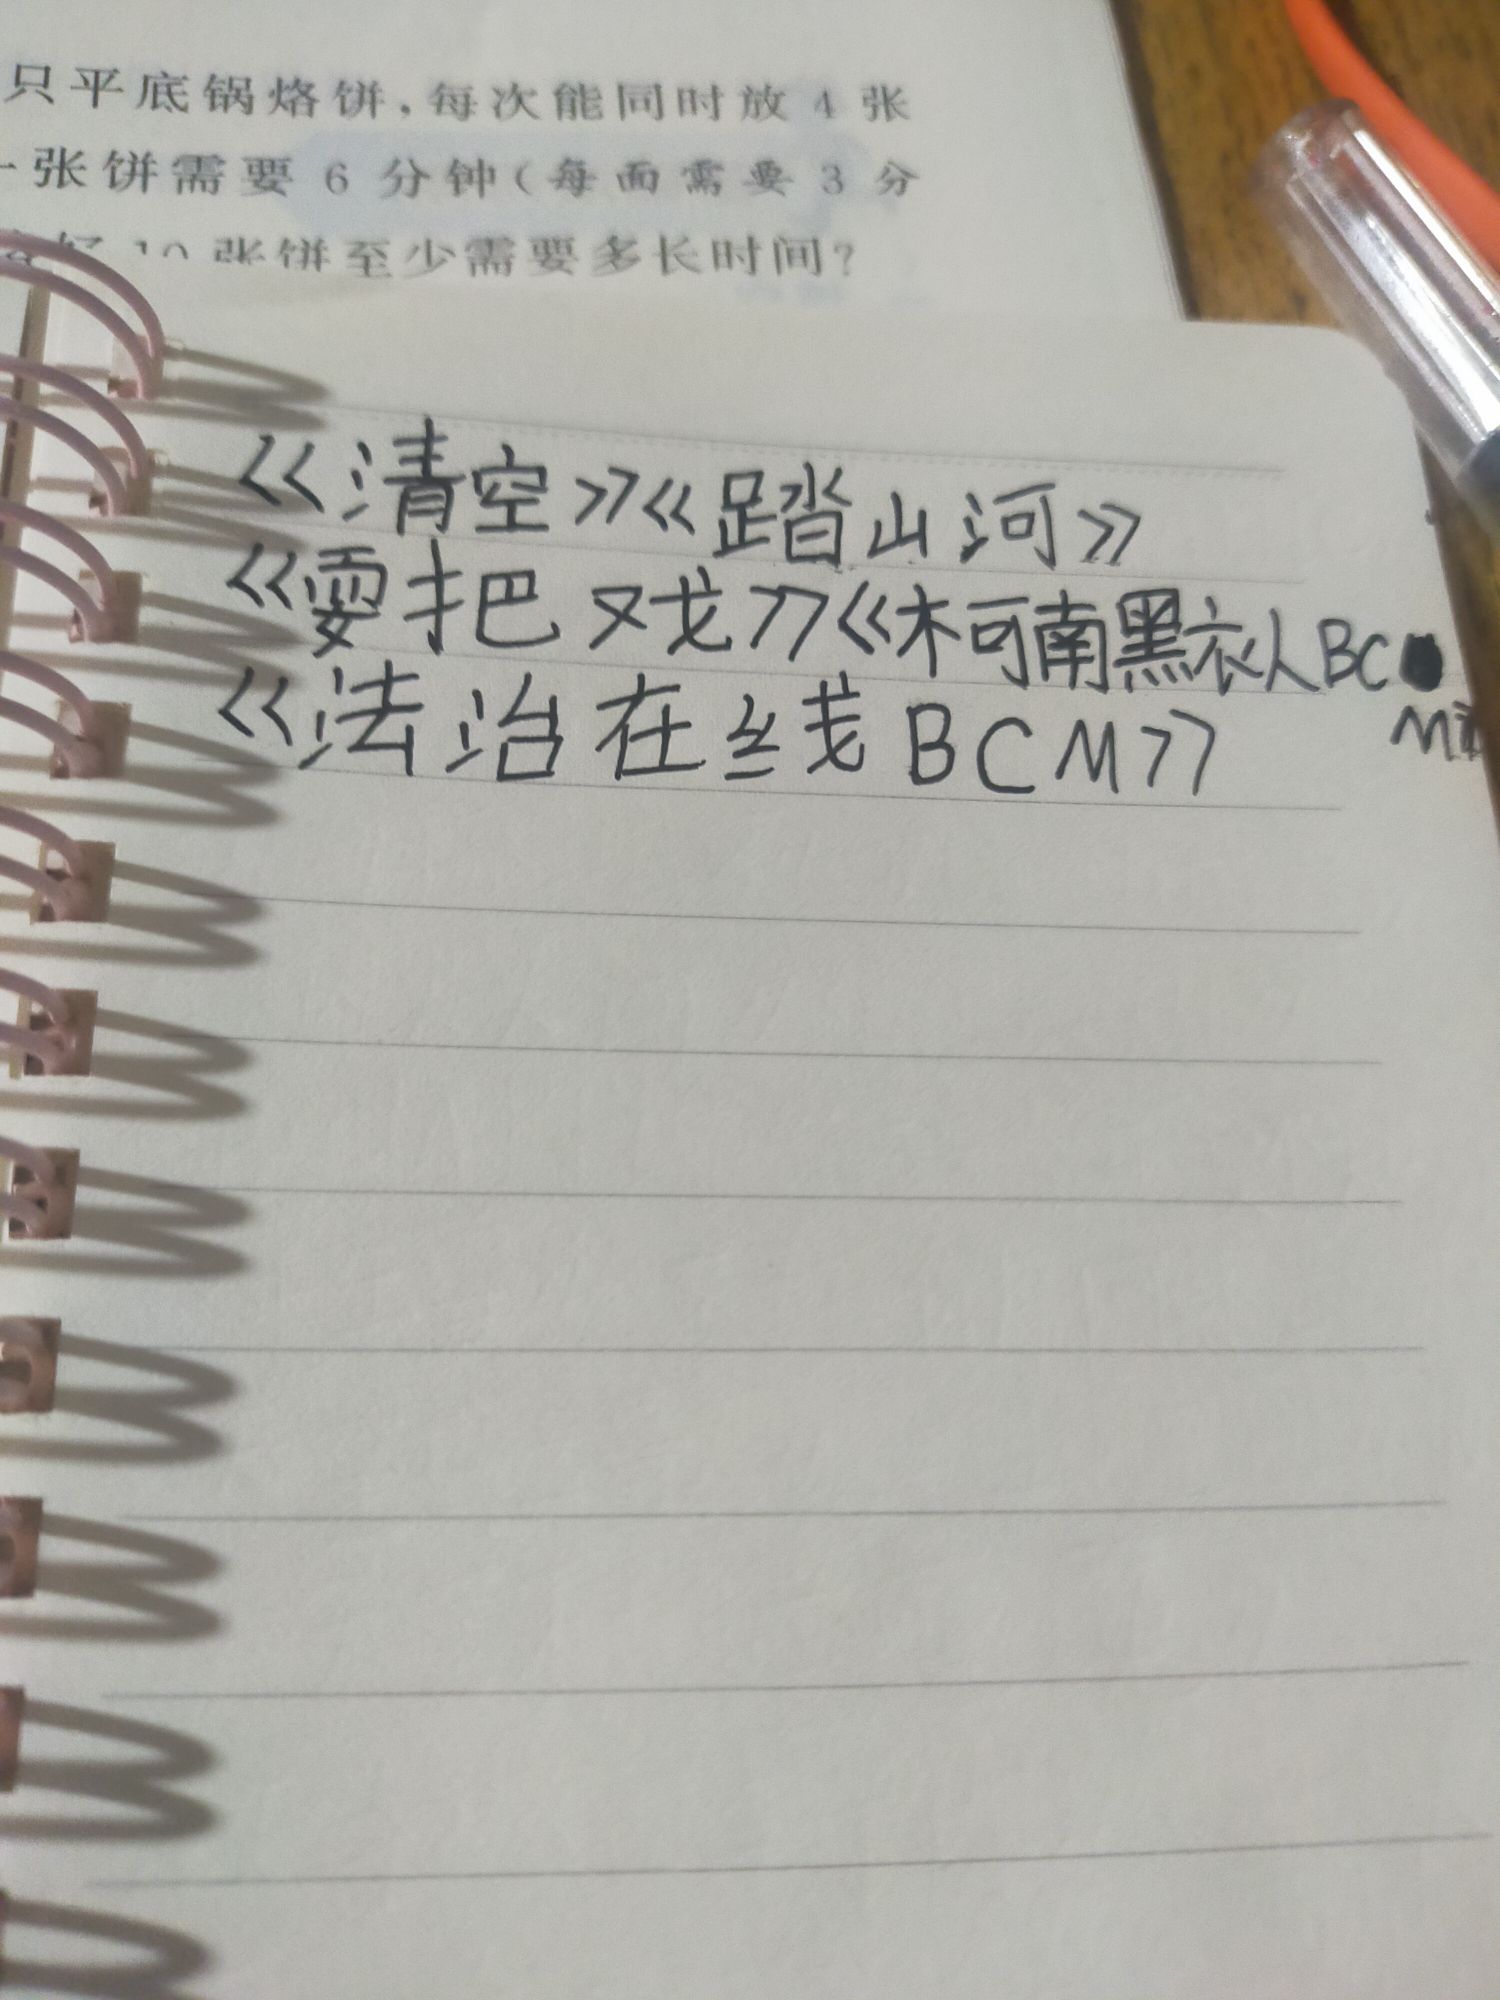 只平底锅烙饼,每次能同时放 4 张
张饼需要 6 分钟(每面需要 3 分
10 张饼至少需要多长时间?
《清空》《踏山河》
《耍把戏》《柯南黑衣人BC
M
《法治在线BCM》